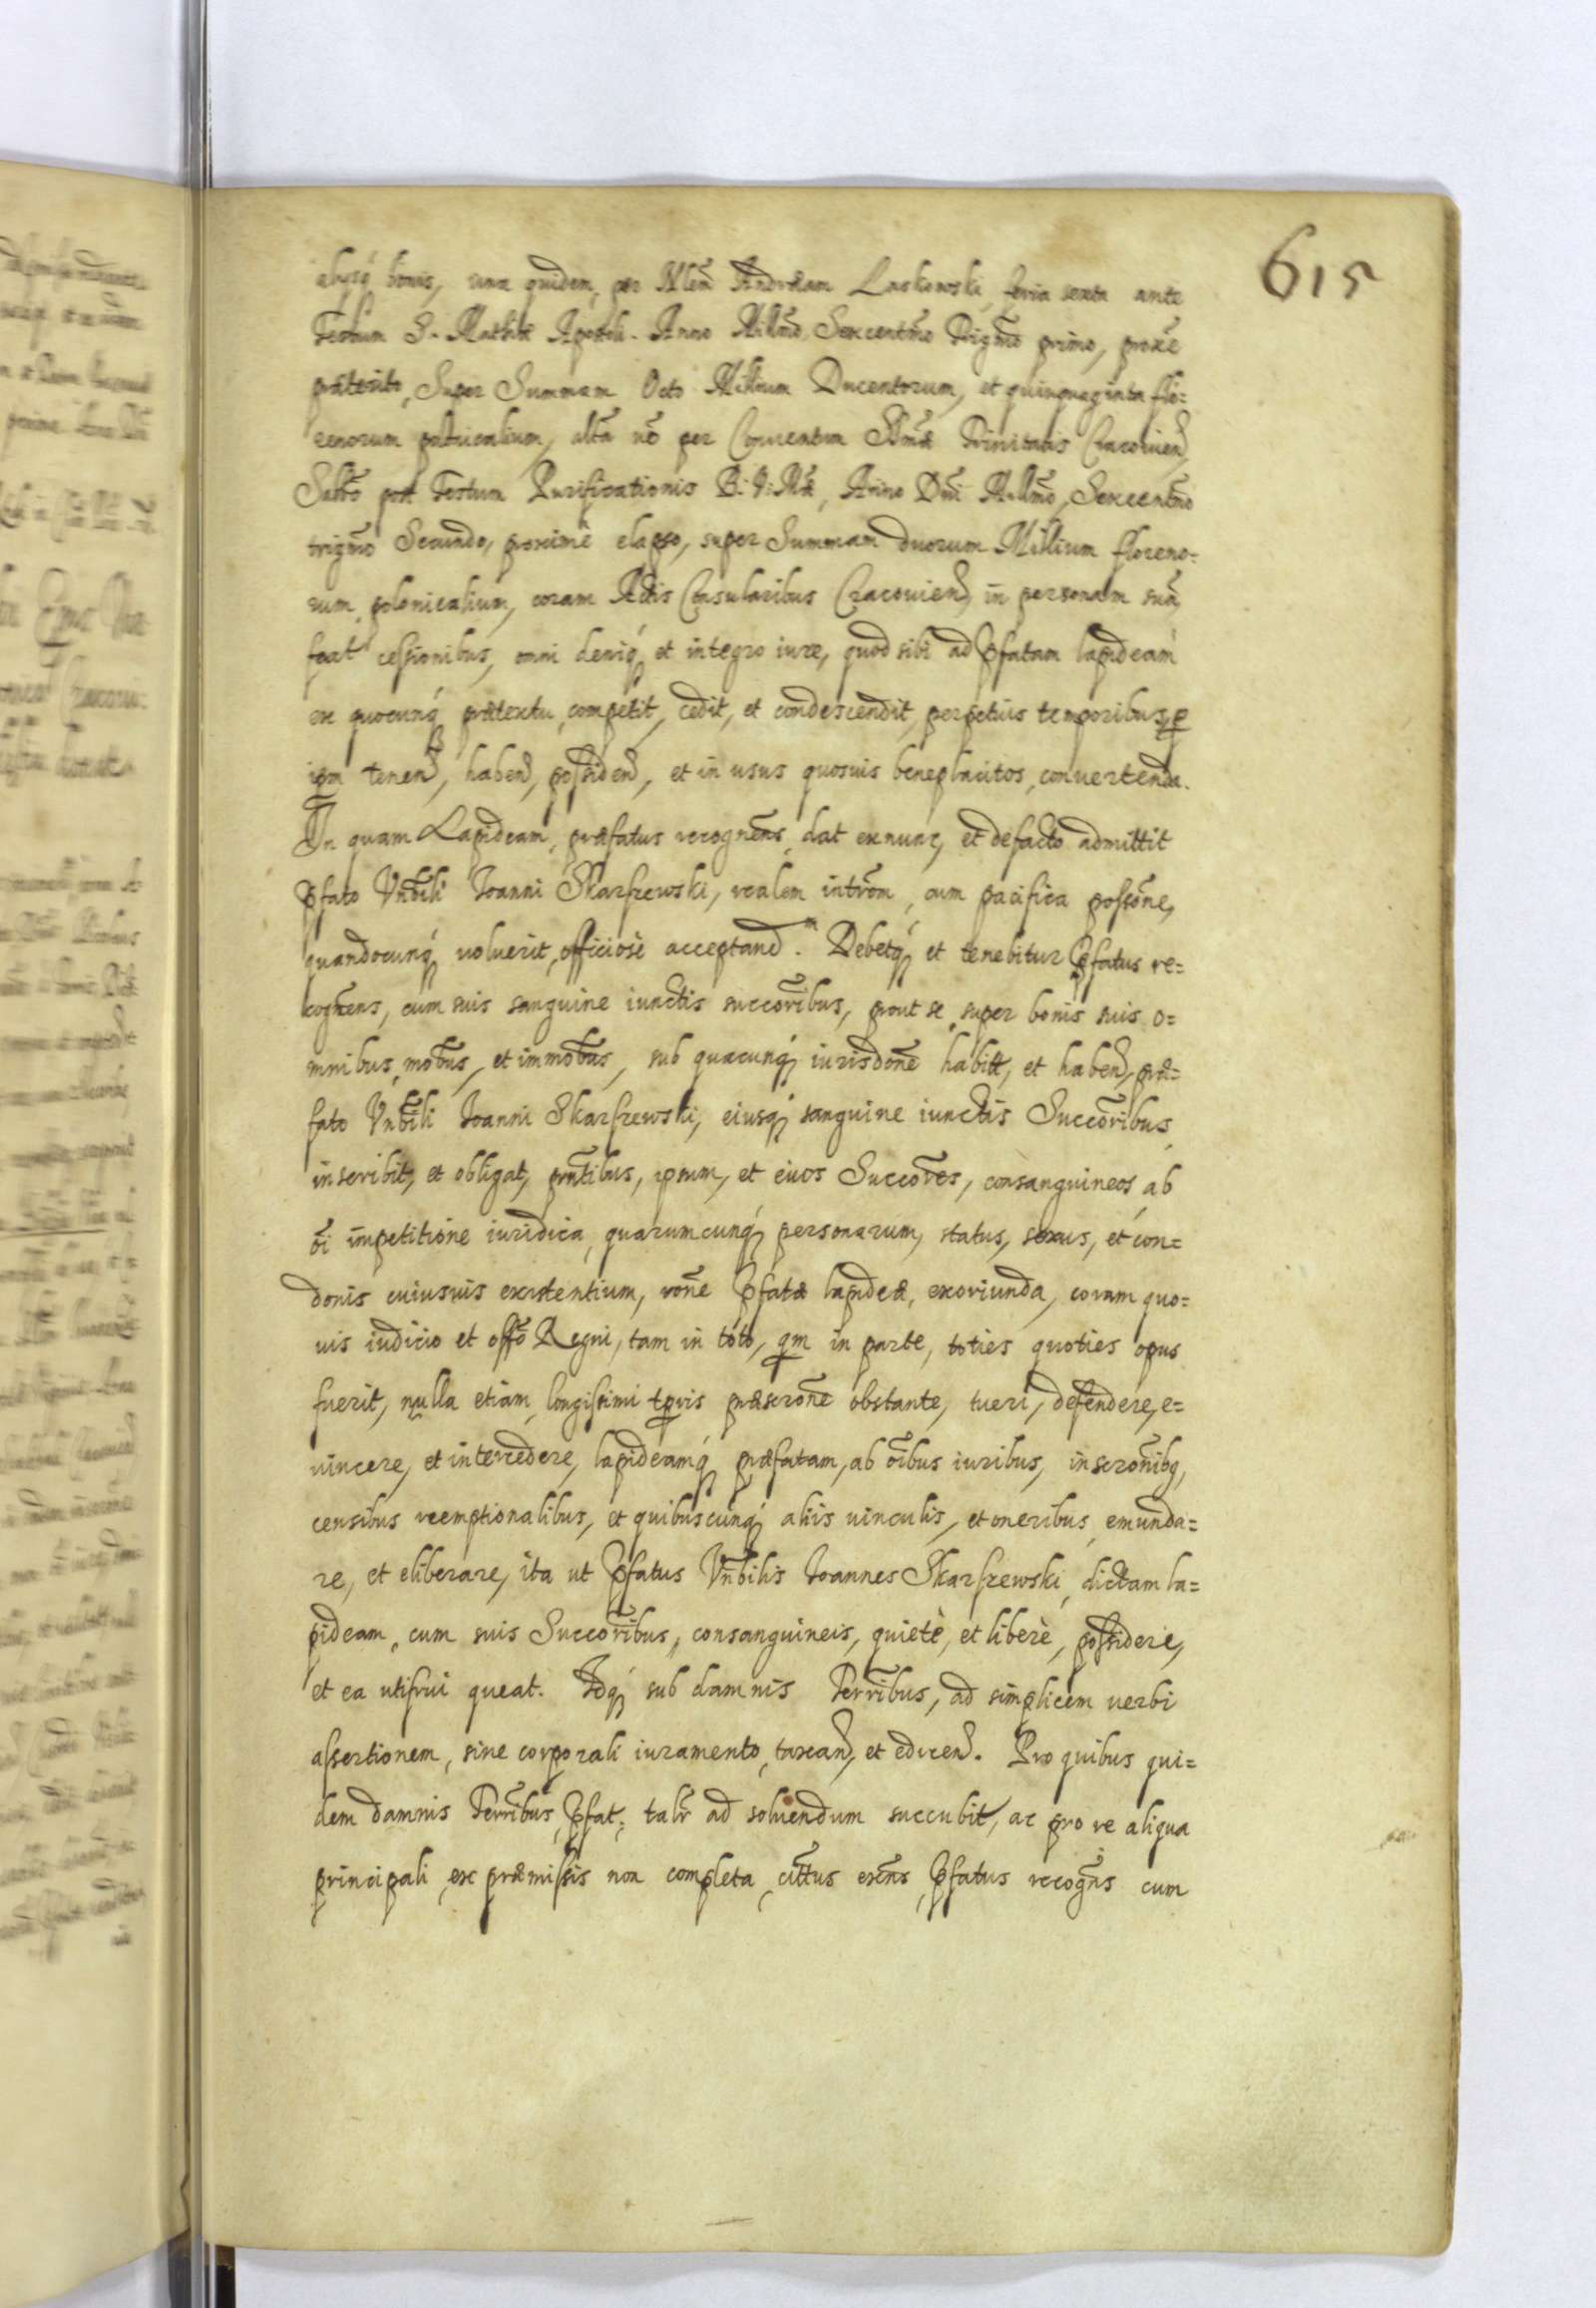 615
alijsq́ bonis, una quidem, per Nlem Andream Laskowski, feria sexta ante
Festum S. Mathiæ Apostoli. Anno Millmo, Sexcentmo Trigmo primo, proxe
præterito, Super Summam Octo Millium Ducentorum, et quinquaginta flo=
renorum polonicalium, alta uo per Conuentum SSmæ Trinitatis Cracouien,
Sabbo post Festum Purificationis B. V. Mæ, Anno Dni Millmo, Sexcentmo
trigmo Secundo, proximè elapso, super Summam duorum Millium floreno=
rum polonicalium, coram Actis Consularibus Cracouien, in personam suã,
fcat cessionibus, omni deniq́ et integro iure, quod sibi ad Pfatam lapideam
ex quocunq́ prætextu, competit, cedit, et condescendit, perpetuis temporibus, p
ipm tenen, haben, possiden, et in usus quosuis beneplacitos, conuertenda.
In quam Lapideam, præfatus recognens, dat exnunc, et defacto admittit
Pfato Vnbili Ioanni Skarszewski, realem introm, cum pacifica possone,
quandocunq́ voluerit, officiosè acceptand. Debetq́ et tenebitur Pfatus re=
cognens, cum suis sanguine iunctis succoribus, prout se super bonis suis o=
mnibus, mobus, et immobus, sub quacunq́ iurisdone habit, et haben, præ=
fato Vnbili Ioanni Skarszewski, eiusq́ sanguine iunctis Succoribus
inscribit, et obligat, pntibus, ipsum, et eius Succores, consanguineos, ab
oi impetitione iuridica, quarumcunq́ personarum, status, sexus, et con=
donis cuiusuis existentium, rone Pfatæ lapideæ, exoriunda, coram quo=
uis iudicio et offo Regni, tam in toto, qm in parte, toties quoties opus
fuerit, nulla etiam longissimi tpris præscrone obstante, tueri, defendere, e=
uincere, et intercedere, lapideamq́ præfatam, ab oibus iuribus, inscronibq,
censibus reemptionalibus, et quibuscunq́ aliis uinculis, et oneribus emunda=
re, et eliberare, ita ut Pfatus Vnbilis Ioannes Skarszewski, dictam la=
pideam, cum suis Succoribus, consanguineis, quietè, et liberè, possidere,
et ea utifrui queat. Idq́ sub damnis Terribus, ad simplicem uerbi
assertionem, sine corporali iuramento, taxan, et edicen. Pro quibus qui=
dem damnis Terribus, Pfat: talr ad soluendum succubit, ac pro re aliqua
principali, ex præmissis non completa, cittus exns, Pfatus recogns cum